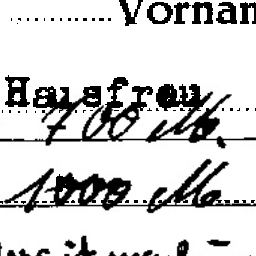 Vornam
Hausfrau
700 M.
1000 M